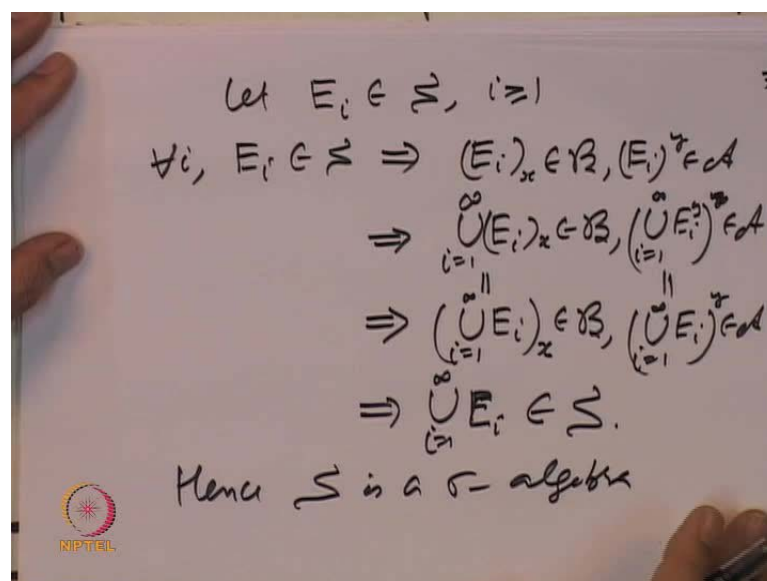 Let E_i ∈ S, i ≥ 1
∀i, E_i ∈ S ⇒ (E_i)_x ∈ B, (E_i)^y ∈ A
⇒ ⋃_{i=1}^∞ (E_i)_x ∈ B, (⋃_{i=1}^∞ E_i^y) ∈ A
|| ||
⇒ (⋃_{i=1}^∞ E_i)_x ∈ B, (⋃_{i=1}^∞ E_i)^y ∈ A
⇒ ⋃_{i=1}^∞ E_i ∈ S.
Hence S is a σ- algebra
NPTEL